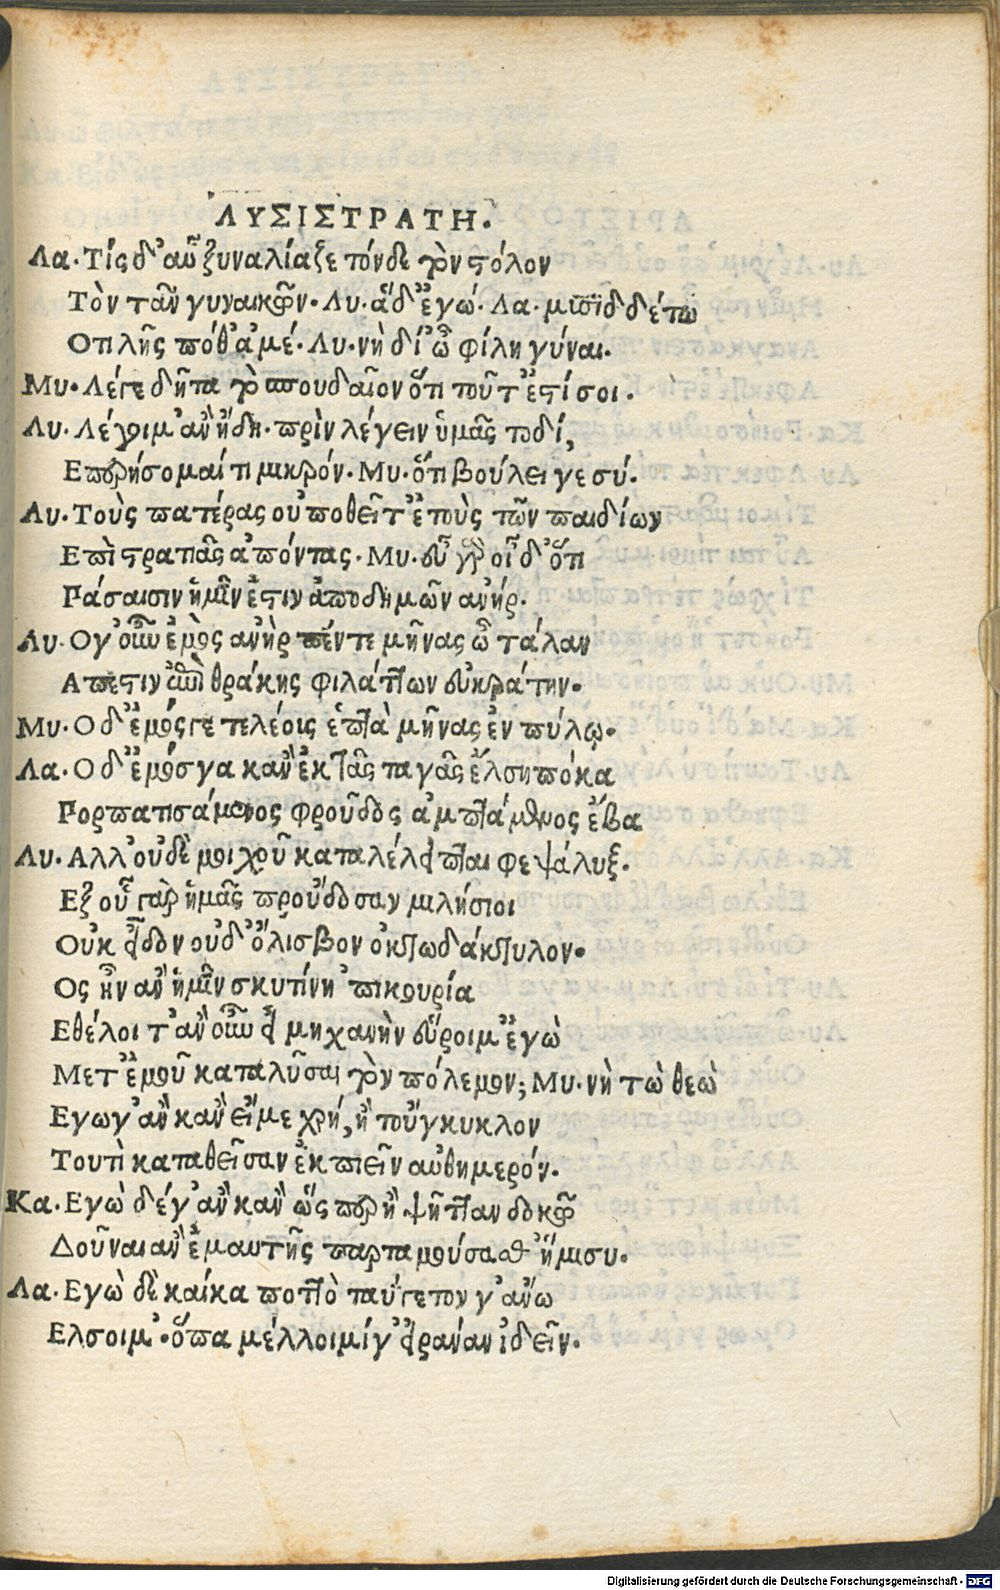 ΛΥΣΙΣΤΡΑΤΗ.
Λα. Τίς δ' αὖ ξυναλίαξε τόνδε τὸν στόλον
Τὸν τᾶν γυναικῶν. Λυ. ἅδ' ἐγώ. Λα. μυσίδδέ τω
Οτι λῇς ποθ' ἁμέ. Λυ. νὴ δί' ὦ φίλη γύναι.
Μυ. Λέγε δῆτα τὸ σπουδαῖον ὅτι τοῦτ' ἐστί σοι.
Λυ. Λέγοιμ' ἂν ἤδη. πρὶν λέγειν ὑμᾶς τοδί,
Επερήσομαί τι μικρόν. Μυ. ὅτι βούλει γε σύ.
Λυ. Τοὺς πατέρας οὐ ποθεῖτ' ἐ τοὺς τῶν παιδίων
Επὶ στρατιᾶς ἀπόντας. Μυ. εὖ γὰρ οἶδ' ὅτι
Πάσαισιν ἡμῖν ἐστιν ἀποδημῶν ἀνήρ.
Λυ. Ογ' οὖν ἐμὸς ἀνὴρ πέντε μῆνας ὦ τάλαν
Απεστιν ἐπὶ θράκης φιλάττων εὐκράτην.
Μυ. Ο δ' ἐμός γε τελέοις ἑπτὰ μῆνας ἐν πύλῳ.
Λα. Ο δ' ἐμός γα κἂν ἐκ τᾶς ταγᾶς ἔλσῃ πόκα
Πορπατισάμενος φροῦδος ἀμπτάμενος ἔβα
Λυ. Αλλ' οὐδὲ μοιχοῦ καταλέλειπται φεψάλυξ.
Εξ οὗ γὰρ ἡμᾶς προὔδοσαν μιλήσιοι
Οὐκ εἶδον οὐδ' ὄλισβον ὀκτωδάκτυλον.
Ος ἦν ἂν ἡμῖν σκυτίνη 'πικουρία
Εθέλοι τ' ἂν οὖν εἰ μηχανὴν εὕροιμ' ἐγὼ
Μετ' ἐμοῦ καταλῦσαι τὸν πόλεμον; Μυ. νὴ τὼ θεὼ
Εγωγ' ἂν κἂν εἴ με χρή, ἢ τοὔγκυκλον
Τουτὶ καταθεῖσαν ἐκπιεῖν αὐθημερόν.
Κα. Εγὼ δέγ' ἂν κἂν ὥσπερ εἰ ψῆτταν δοκῶ
Δοῦναι ἂν ἐμαυτῆς παρταμοῦσα θ' ἥμισυ.
Λα. Εγὼ δὲ καίκα ποττὸ ταΰγετον γ' ἄνω
Ελσοιμ'. ὅπα μέλλοιμί γ' εἰράναν ἰδεῖν.
Digitalisierung gefördert durch die Deutsche Forschungsgemeinschaft - DFG